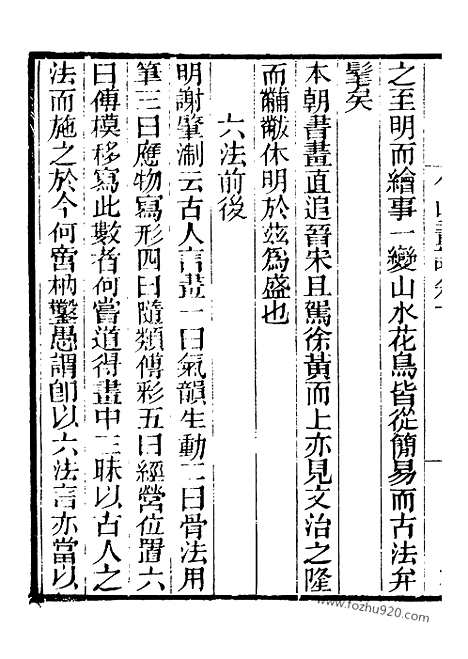 之至明而繪事一變山水花鳥皆從簡易而古法弁
髦矣
本朝書畫直追晉宋且駕徐黃而上亦見文治之隆
而黼黻休明於茲為盛也
六法前後
明謝肇淛云古人言畫一曰氣韻生動二曰骨法用
筆三曰應物寫形四曰隨類傅彩五曰經營位置六
曰傳模移寫此數者何嘗道得畫中三昧以古人之
法而施之於今何啻枘鑿愚謂卽以六法言亦當以
www.fozhu920.com